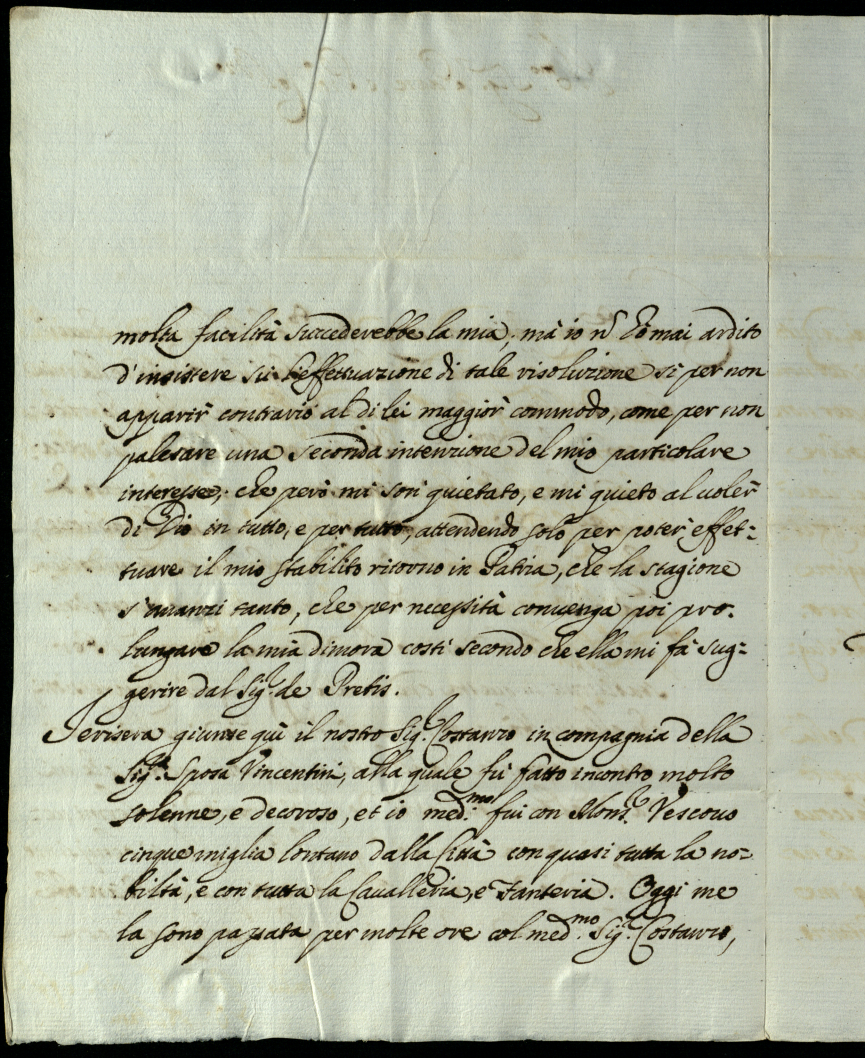 molta facilità succederebbe la mia; mà io nō hò mai ardito
d'insistere sù l'effettuazione di tale risoluzione sì per non
apparir contrario al di lei maggior commodo, come per non
palesare una seconda intenzione del mio particolare
interesse; che però mi son quietato, e mi quieto al voler
di Dio in tutto, e per tutto, attendendo solo per poter effet-
tuare il mio stabilito ritorno in Patria, che la stagione
s'avanzi tanto, che per necessità convenga poi pro-
lungare la mia dimora costì secondo che ella mi fà sug-
gerire dal Sig.r de Pretis.
Ierisera giunse quì il nostro Sig.r Costanzo in compagnia della
Sig.ra Sposa Vincentini, alla quale fù fatto incontro molto
solenne, e decoroso, et io med.mo fui con Mons.r Vescovo
cinque miglia lontano dalla Città con quasi tutta la no-
biltà, e con tutta la Cavalleria, e Fanteria. Oggi me
la sono passata per molte ore col med.mo Sig.r Costanzo,